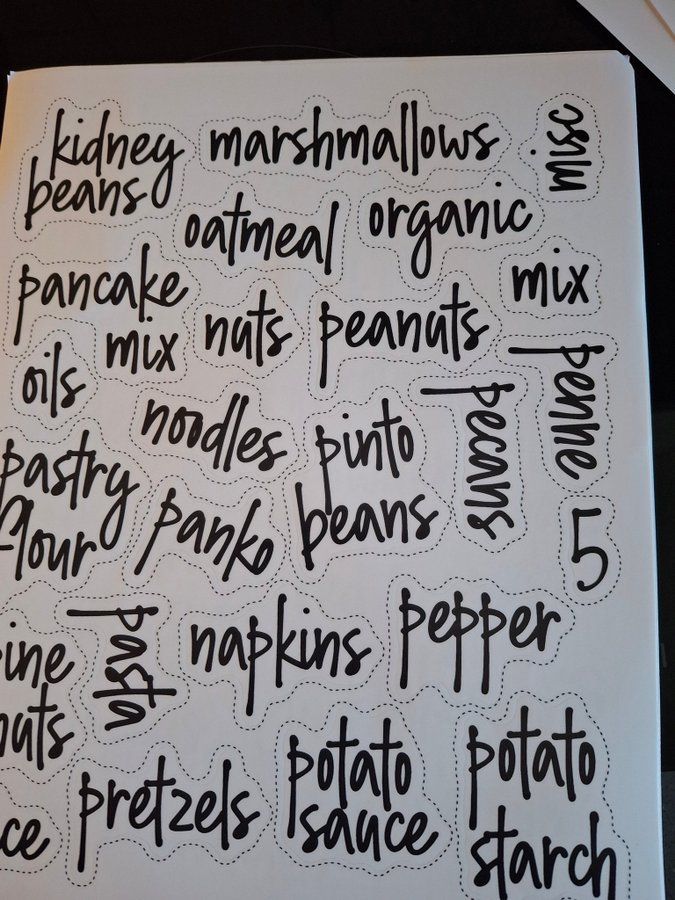 kidney
beans
marshmallows
misc
oatmeal
organic
mix
pancake
mix
nuts
peanuts
oils
penne
pecans
noodles
pinto
beans
pastry
flour
panko
5
pasta
napkins
pepper
ine
nuts
potato
sauce
potato
starch
pretzels
ce